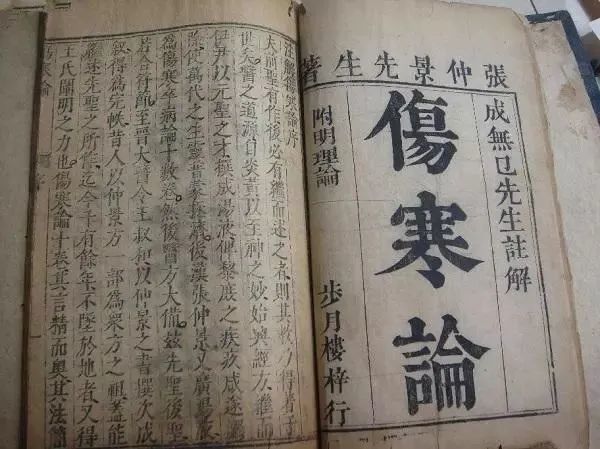 張仲景先生著
成無已先生註解
傷寒論
附明理論
步月樓梓行
註解傷寒論序
夫前聖有作後必有繼而述之者則其教乃得著于
世矣醫之道源自炎黃以至神之妙始興經方繼而
伊尹以元聖之才撰成湯液俾黎庶之疾疚咸遂蠲
除使萬代之生靈普蒙拯濟後漢張仲景又廣湯液
為傷寒卒病論十數卷然後醫方大備茲先聖後聖
若合符節至晉太醫令王叔和以仲景之書撰次成
敘得為完帙昔人以仲景方一部為衆方之祖蓋能
繼述先聖之所作迄今千有餘年不墜於地者又得
王氏闡明之力也傷寒論十卷其言精而奧其法簡